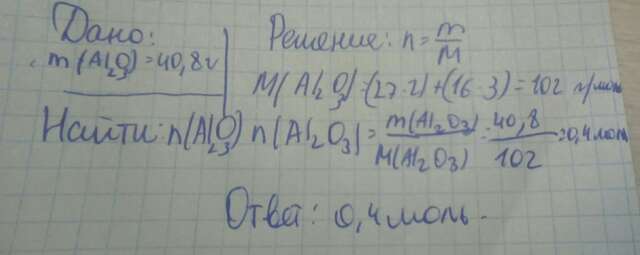 Дано:
m(Al2O3)=40,8г
Найти: n(Al2O3)
Решение: n=m/M
M(Al2O3)=(27·2)+(16·3)=102 г/моль
n(Al2O3)=m(Al2O3)/M(Al2O3)=40,8/102=0,4 моль
Ответ: 0,4 моль.